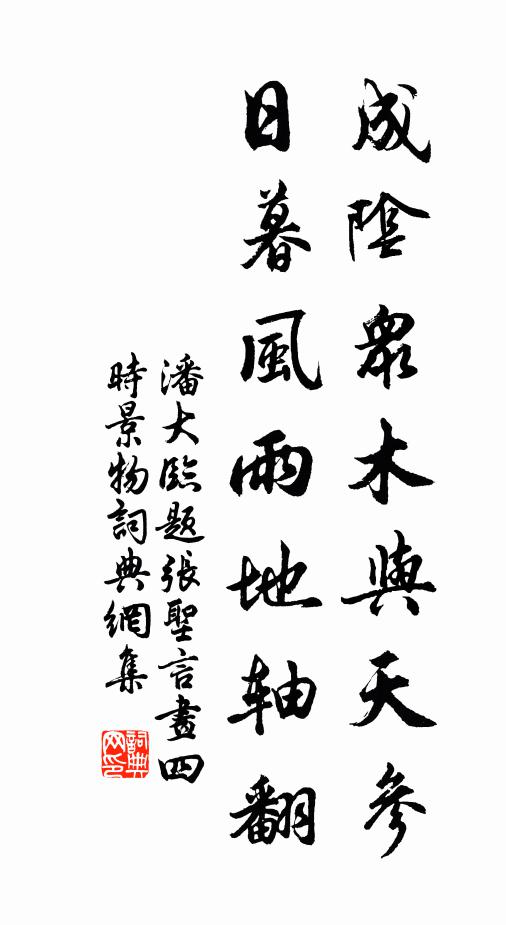 成陰衆木與天參
日暮風雨地軸翻
潘大臨題張聖言畫四
時景物詞典網集
詞典
网印